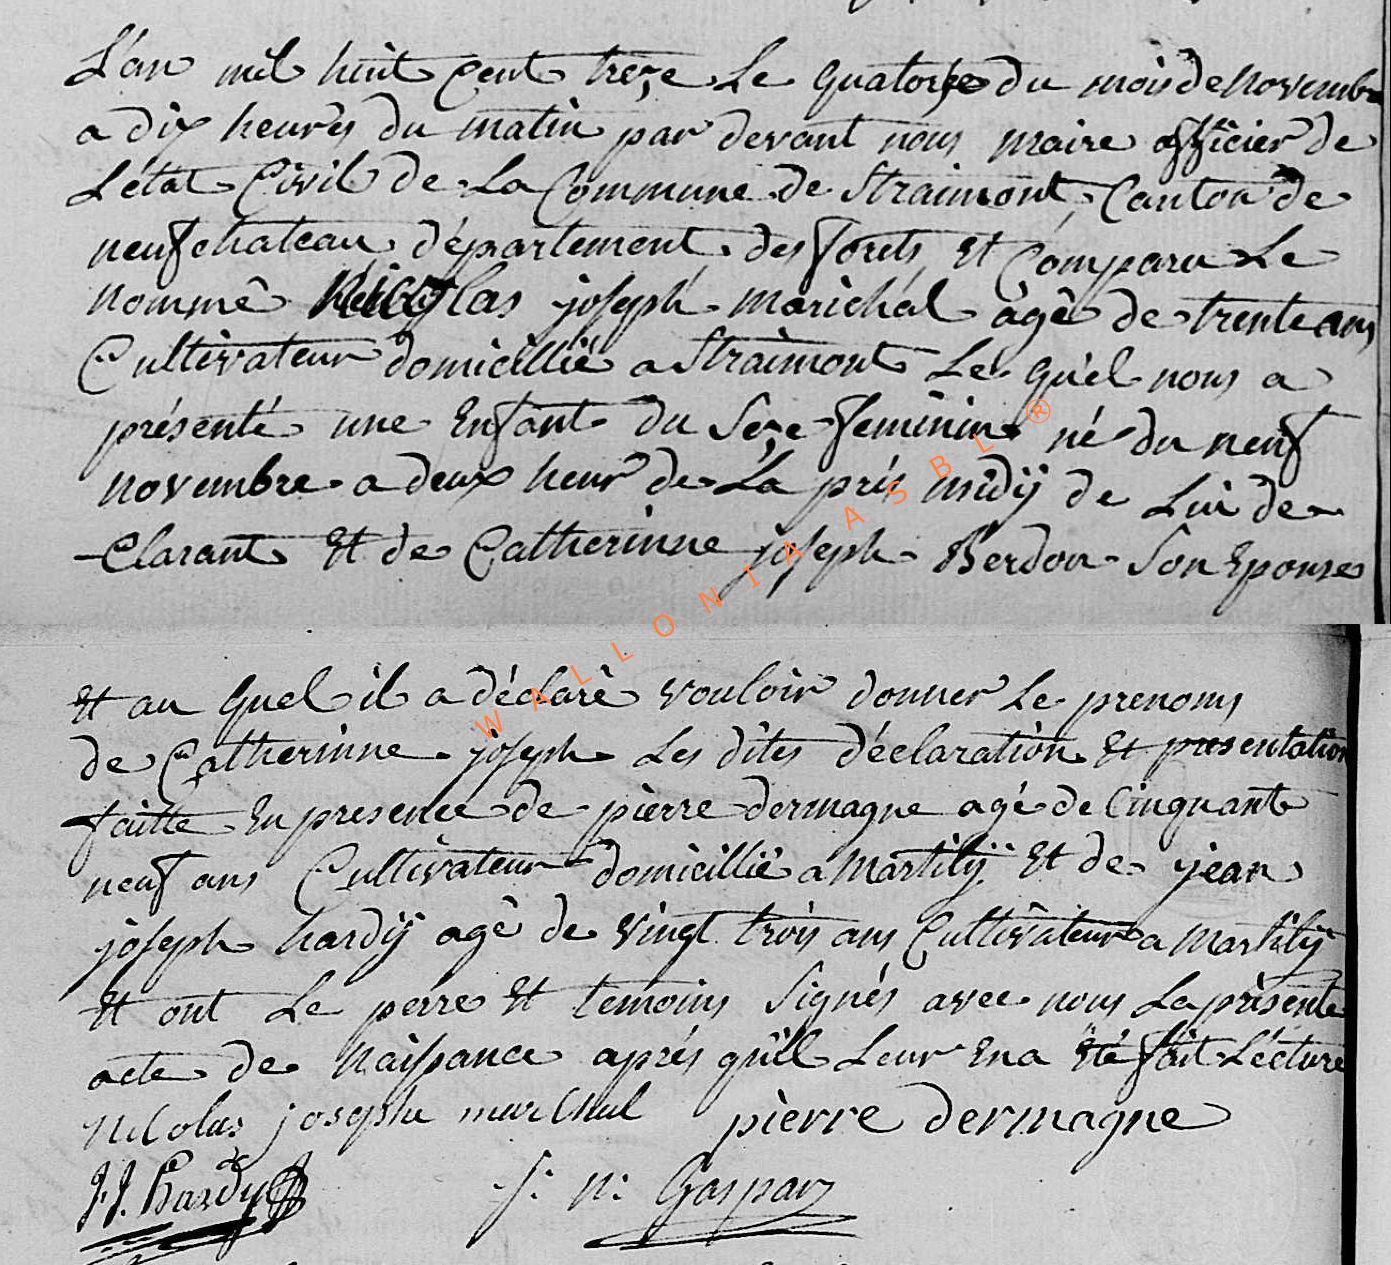 L'an mil huit Cent treze Le quatorze du mois de Novembre
a dix heures du matin par devant nous maire officier de
L'état Civil de La Commune de Straimont, Canton de
neufchateau département des forets Et Comparu Le
nommé Nicolas joseph marichal agé de trente ans
Cultivateur domicillié a Straimont Le quel nous a
présenté une Enfant du Seze feminin né du neuf
novembre a deux heur de La prés midÿ de Lui de
-Clarant Et de Catherinne joseph Berdon Son Epouse
Et au quel il a déclaré vouloir donner Le prenoms
de Catherinne joseph Les dites déclaration Et presentation
faitte En presence de pierre dermagne agé de Cinquante
neuf ans Cultivateur domicillié a Martilÿ Et de jean
joseph hardÿ agé de vingt trois ans Cultivateur a Martilÿ
Et ont Le perre Et temoins Signés avec nous La présente
acte de Naissance aprés qu'il Leur En a été fait Lécture
Nicolas joseph marichal pierre dermagne
J.J. Hardy J: N: Gaspar
WALLONIA ASBL ®